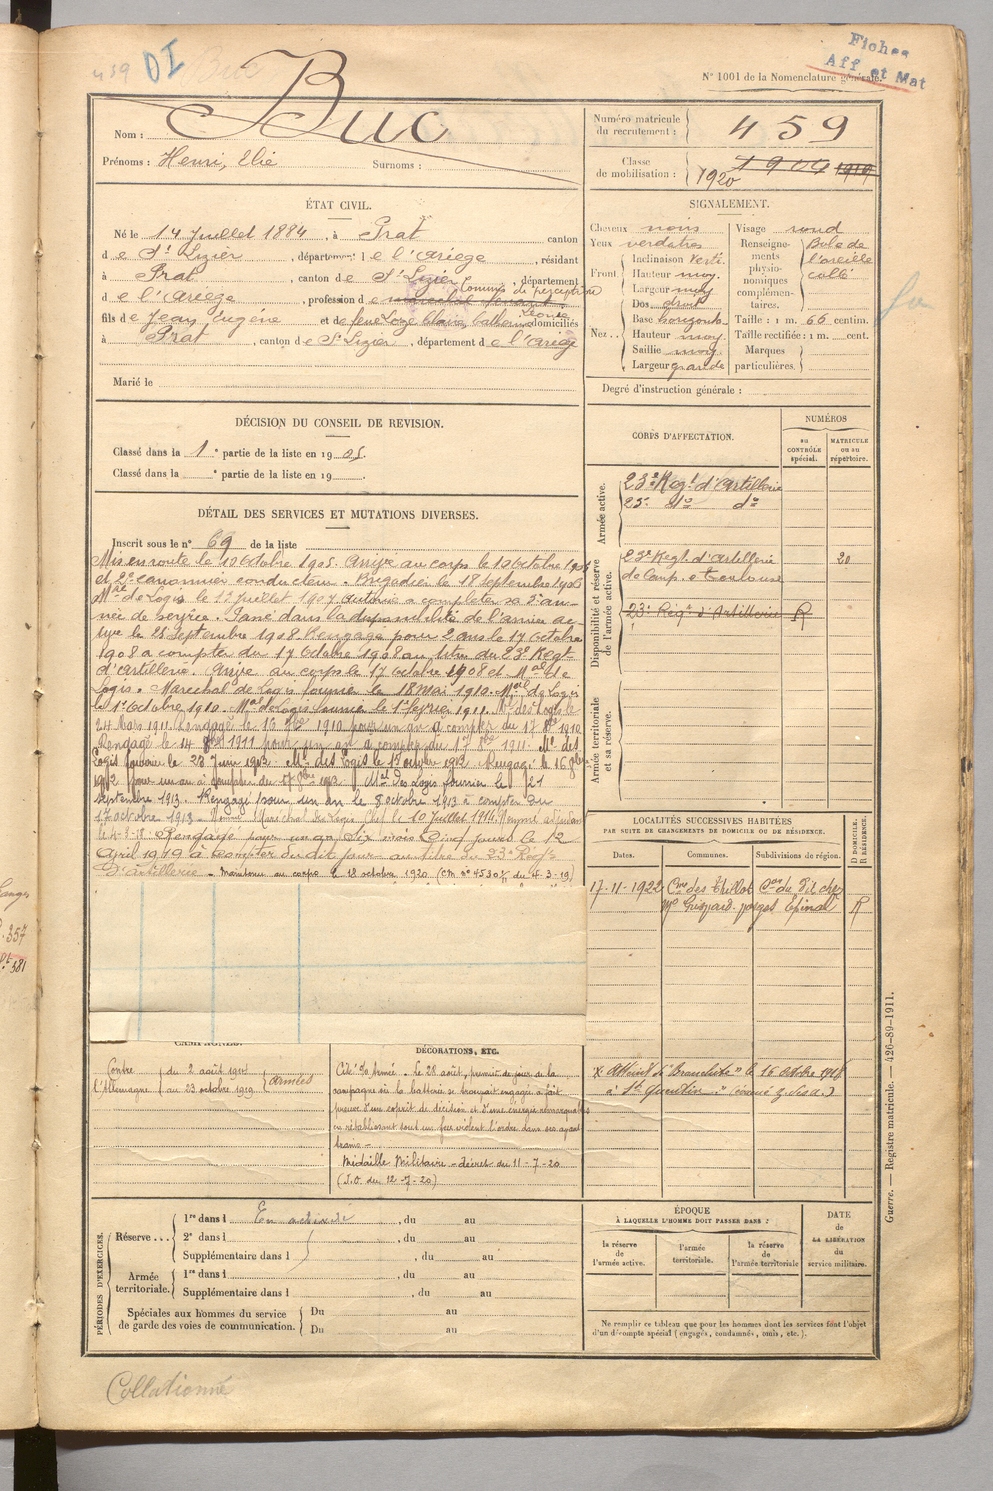 459 DI Buc
Fiches
Aff et Mat
N° 1001 de la Nomenclature générale.
Nom : Buc
Prénoms : Henri, Elie Surnoms :
Numéro matricule
du recrutement : 459
Classe
de mobilisation : 1904 1919
1920
ÉTAT CIVIL.
Né le 14 Juillet 1884, à Prat canton
de St Lizier, département de l'Ariège, résidant
à Prat, canton de St Lizier, département
de l'Ariège, profession de maréchal ferrant Commis de perception
fils de Jean Eugène et de feue Loze Claire Catherine Léonie domiciliés
à Prat, canton de St Lizier, département de l'Ariège
Marié le
SIGNALEMENT.
Cheveux noirs
Yeux verdâtres
Front. Inclinaison Verti.
Hauteur moy.
Largeur moy
Nez.. Dos droit
Base horizont.
Hauteur moy.
Saillie moy.
Largeur grande
Visage rond
Renseignements physionomiques complémentaires. Bule de
l'oreille
collé
Taille : 1 m. 66 centim.
Taille rectifiée : 1 m. cent.
Marques
particulières.
Degré d'instruction générale :
DÉCISION DU CONSEIL DE REVISION.
Classé dans la 1e partie de la liste en 1905.
Classé dans la e partie de la liste en 19
CORPS D'AFFECTATION.
NUMÉROS
au
CONTRÔLE
spécial.
MATRICULE
ou au
répertoire.
Armée active.
23e Régt d'Artillerie
25e do do
Disponibilité et réserve
de l'armée active.
23e Regt d'Artillerie 20
de Camp. à Toulouse
23e Régt d'Artillerie R
Armée territoriale
et sa réserve.
DÉTAIL DES SERVICES ET MUTATIONS DIVERSES.
Inscrit sous le n° 69 de la liste
Mis en route le 10 Octobre 1905. Arrivé au corps le 10 Octobre
et 2e canonnier conducteur. Brigadier le 18 septembre 1906
Mal de Logis le 1er Juillet 1907. Autorisé à compléter sa 3e an-
née de service. Passé dans la disponibilité de l'armée ac-
tive le 25 Septembre 1908. Rengagé pour 2 ans le 17 Octobre
1908 à compter du 17 Octobre 1908 au titre du 23e Régt
d'artillerie. Arrivé au corps le 17 octobre 1908 et Mal de
Logis. Maréchal de Logis fourrier le 18 Mai 1910. Mal de Logis
le 1er Octobre 1910. Mal de Logis fourrier le 1er février 1911. Mal des Logis le
24 Mars 1911. Rengagé le 16 1910 pour un an à compter du 17 1910
Rengagé le 14 1911 pour un an à compter du 17 1911. Mal des
Logis fourrier le 28 Juin 1912. Mal des Logis le 1er octobre 1912. Rengagé le 16
1912 pour un an à compter du 17. Mal des Logis fourrier le 21
septembre 1913. Rengagé pour un an le 8 octobre 1913 à compter du
17 octobre 1913. Nommé Maréchal des Logis Chef le 10 Juillet 1914. Nommé adjudant
le 4-3-18. Rengagé pour un an six mois cinq jours le 12
Avril 1919 à compter du dit jour au titre du 23e Régt
d'artillerie. Maintenu au corps le 18 octobre 1920 (CM n° 4530 du 4-3-19)
LOCALITÉS SUCCESSIVES HABITÉES
PAR SUITE DE CHANGEMENTS DE DOMICILE OU DE RÉSIDENCE.
D DOMICILE.
R RÉSIDENCE.
Dates. Communes. Subdivisions de région.
17-11-1922 Cne des Thillot
Vosges Epinal R
CAMPAGNES.
Contre du 2 août 1914
l'Allemagne au 23 octobre 1919 armées
DÉCORATIONS, ETC.
Cité Armée. - le 28 août, premier jour de la
campagne où la batterie se trouvait engagée a fait
preuve d'un esprit de décision et d'une énergie remarquables
en rétablissant sous un feu violent l'ordre dans son avant
train -
Médaille Militaire - décret du 11-7-20
(J.O. du 12-7-20)
x Atteint de "bronchite" le 16 octobre 1918
à "St Quentin." (évacué)
PÉRIODES D'EXERCICES.
Réserve... 1re dans l En activité, du au
2e dans l , du au
Supplémentaire dans l , du au
Armée
territoriale. 1re dans l , du au
Supplémentaire dans l , du au
Spéciales aux hommes du service
de garde des voies de communication. Du au
Du au
ÉPOQUE
À LAQUELLE L'HOMME DOIT PASSER DANS :
la réserve
de
l'armée active.
l'armée
territoriale.
la réserve
de
l'armée territoriale.
DATE
de
LA LIBÉRATION
du
service militaire.
Ne remplir ce tableau que pour les hommes dont les services font l'objet
d'un décompte spécial (engagés, condamnés, omis, etc.).
Guerre. — Registre matricule. — 426-89-1911.
Collationné